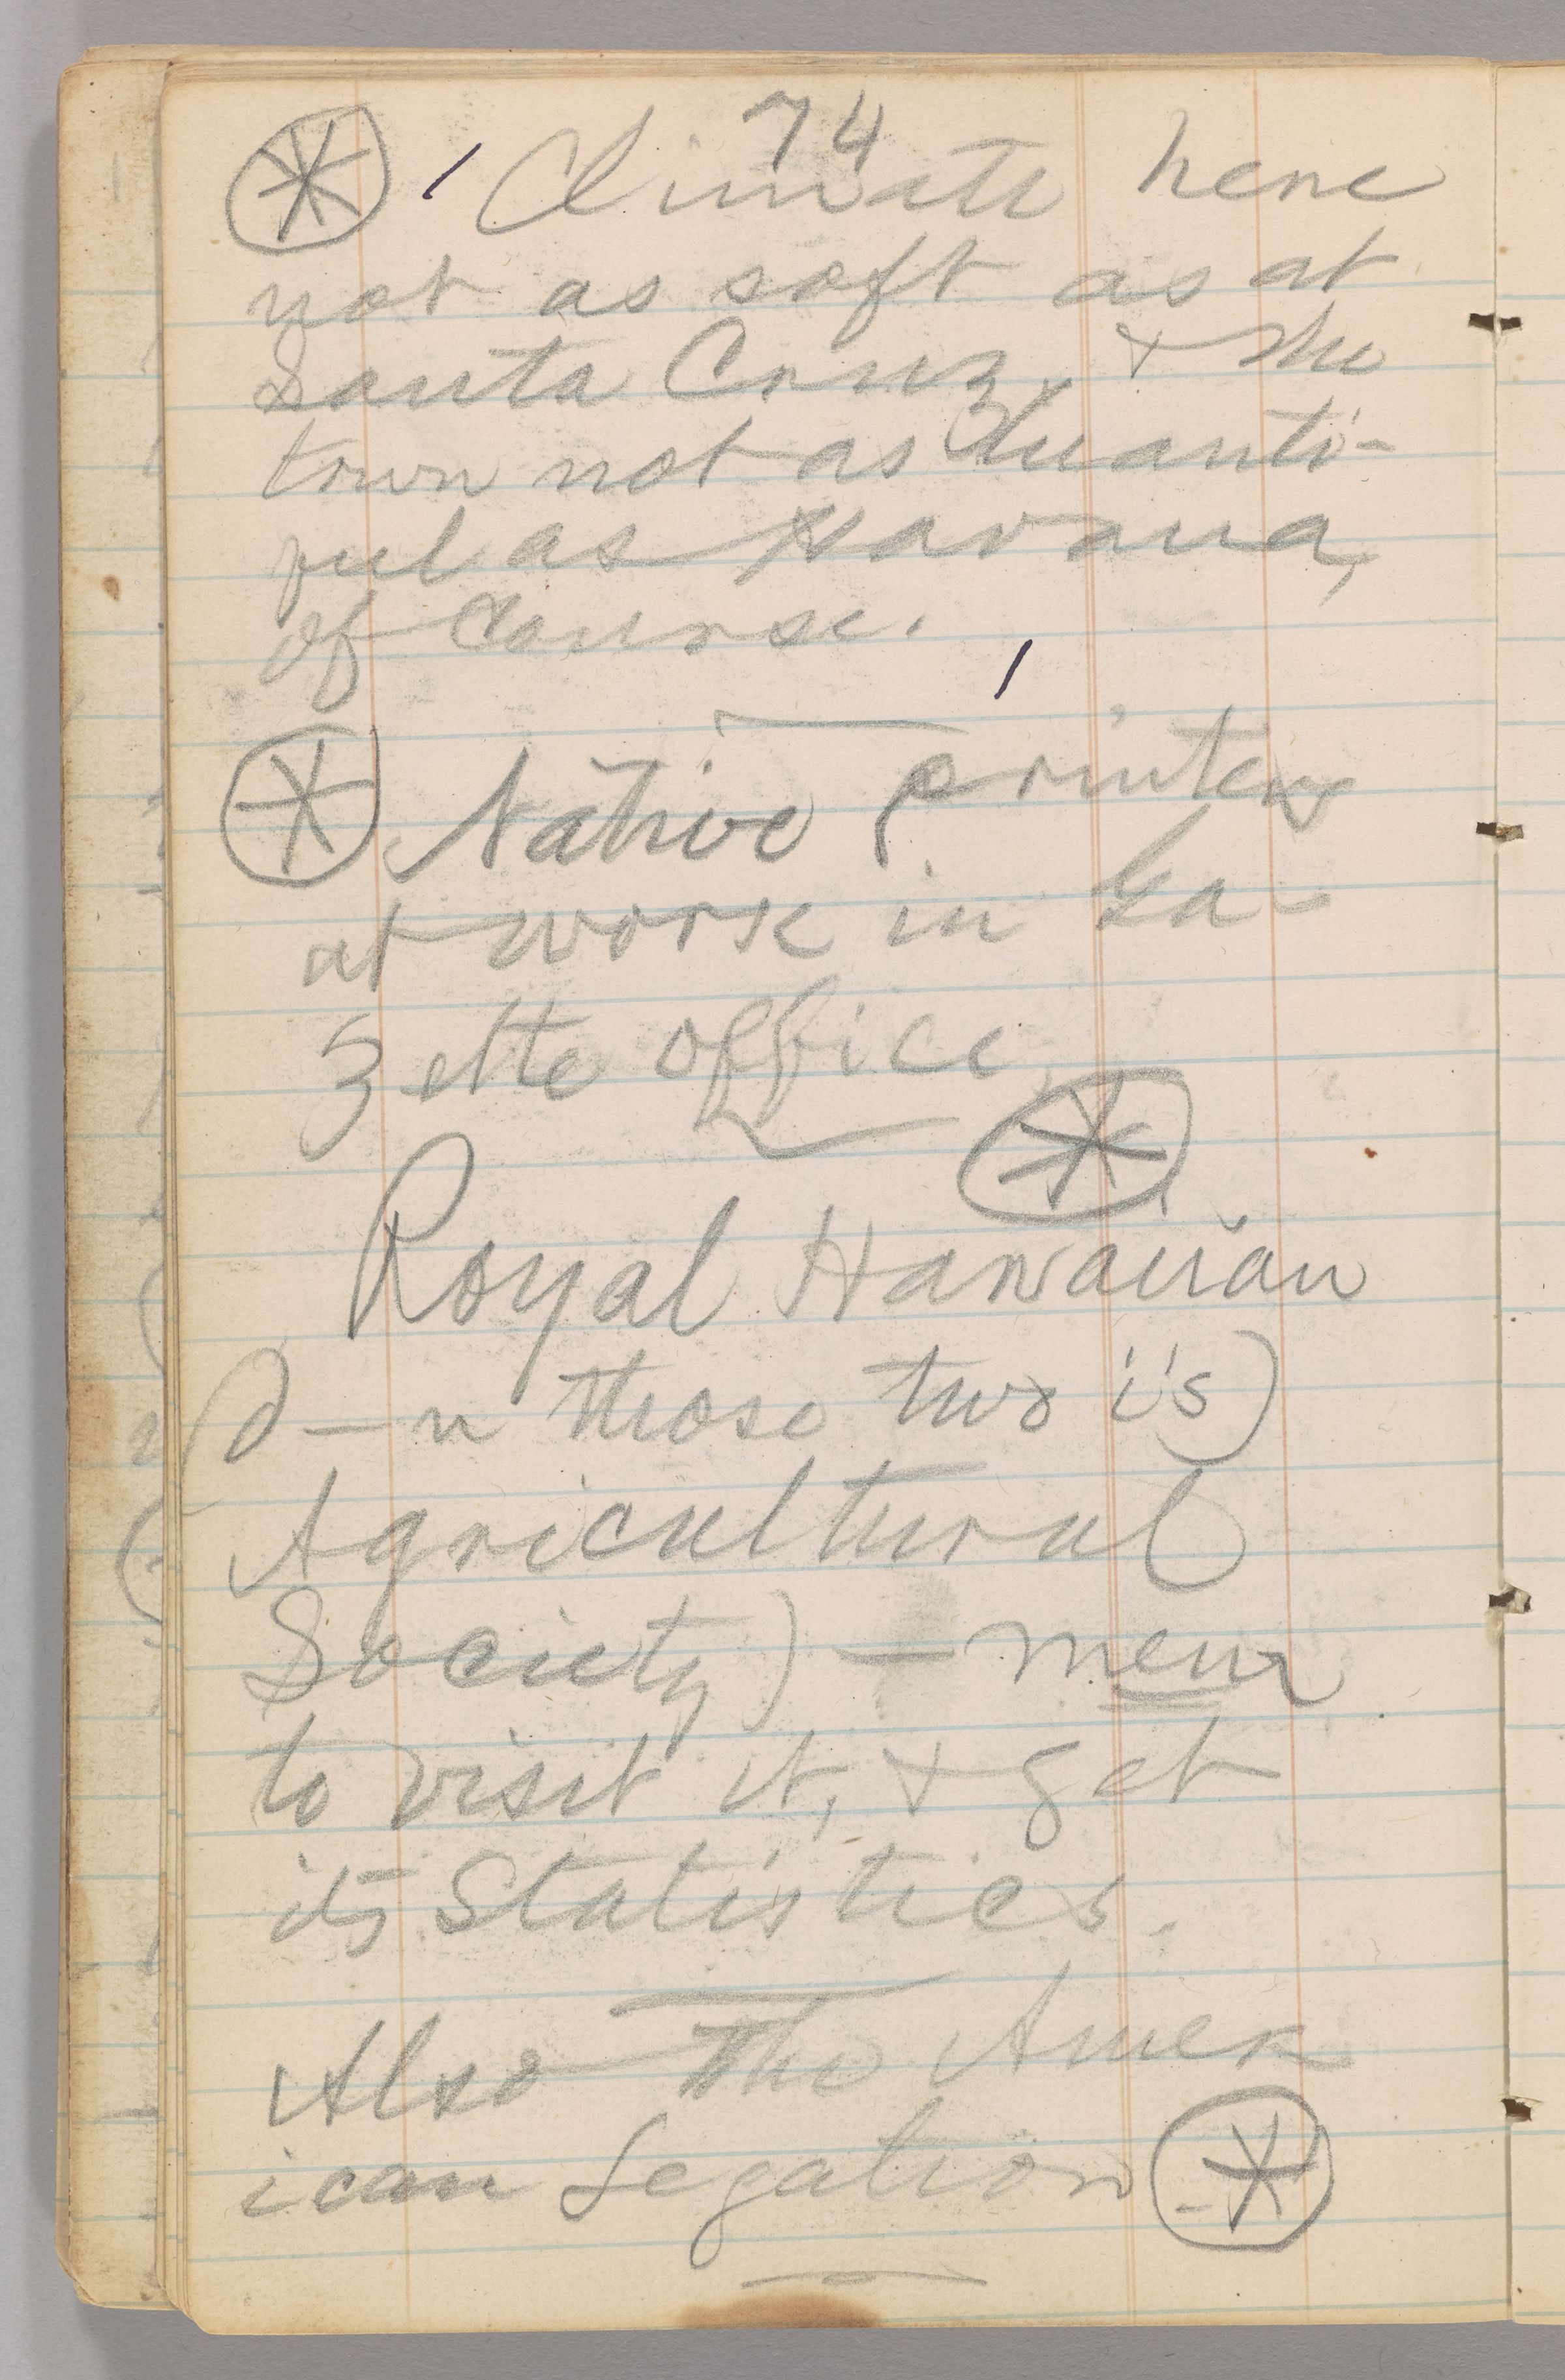 74
Climate here
not as soft as at
Santa Cruz, & the
town not as beauti-
ful as Havana,
of course.
Native printers
at work in Ga-
zette office
Royal Hawaiian
(d—n those two i's)
Agricultural
Society) — mem
to visit it, & get
its Statistics.
Also the Amer
ican Legation